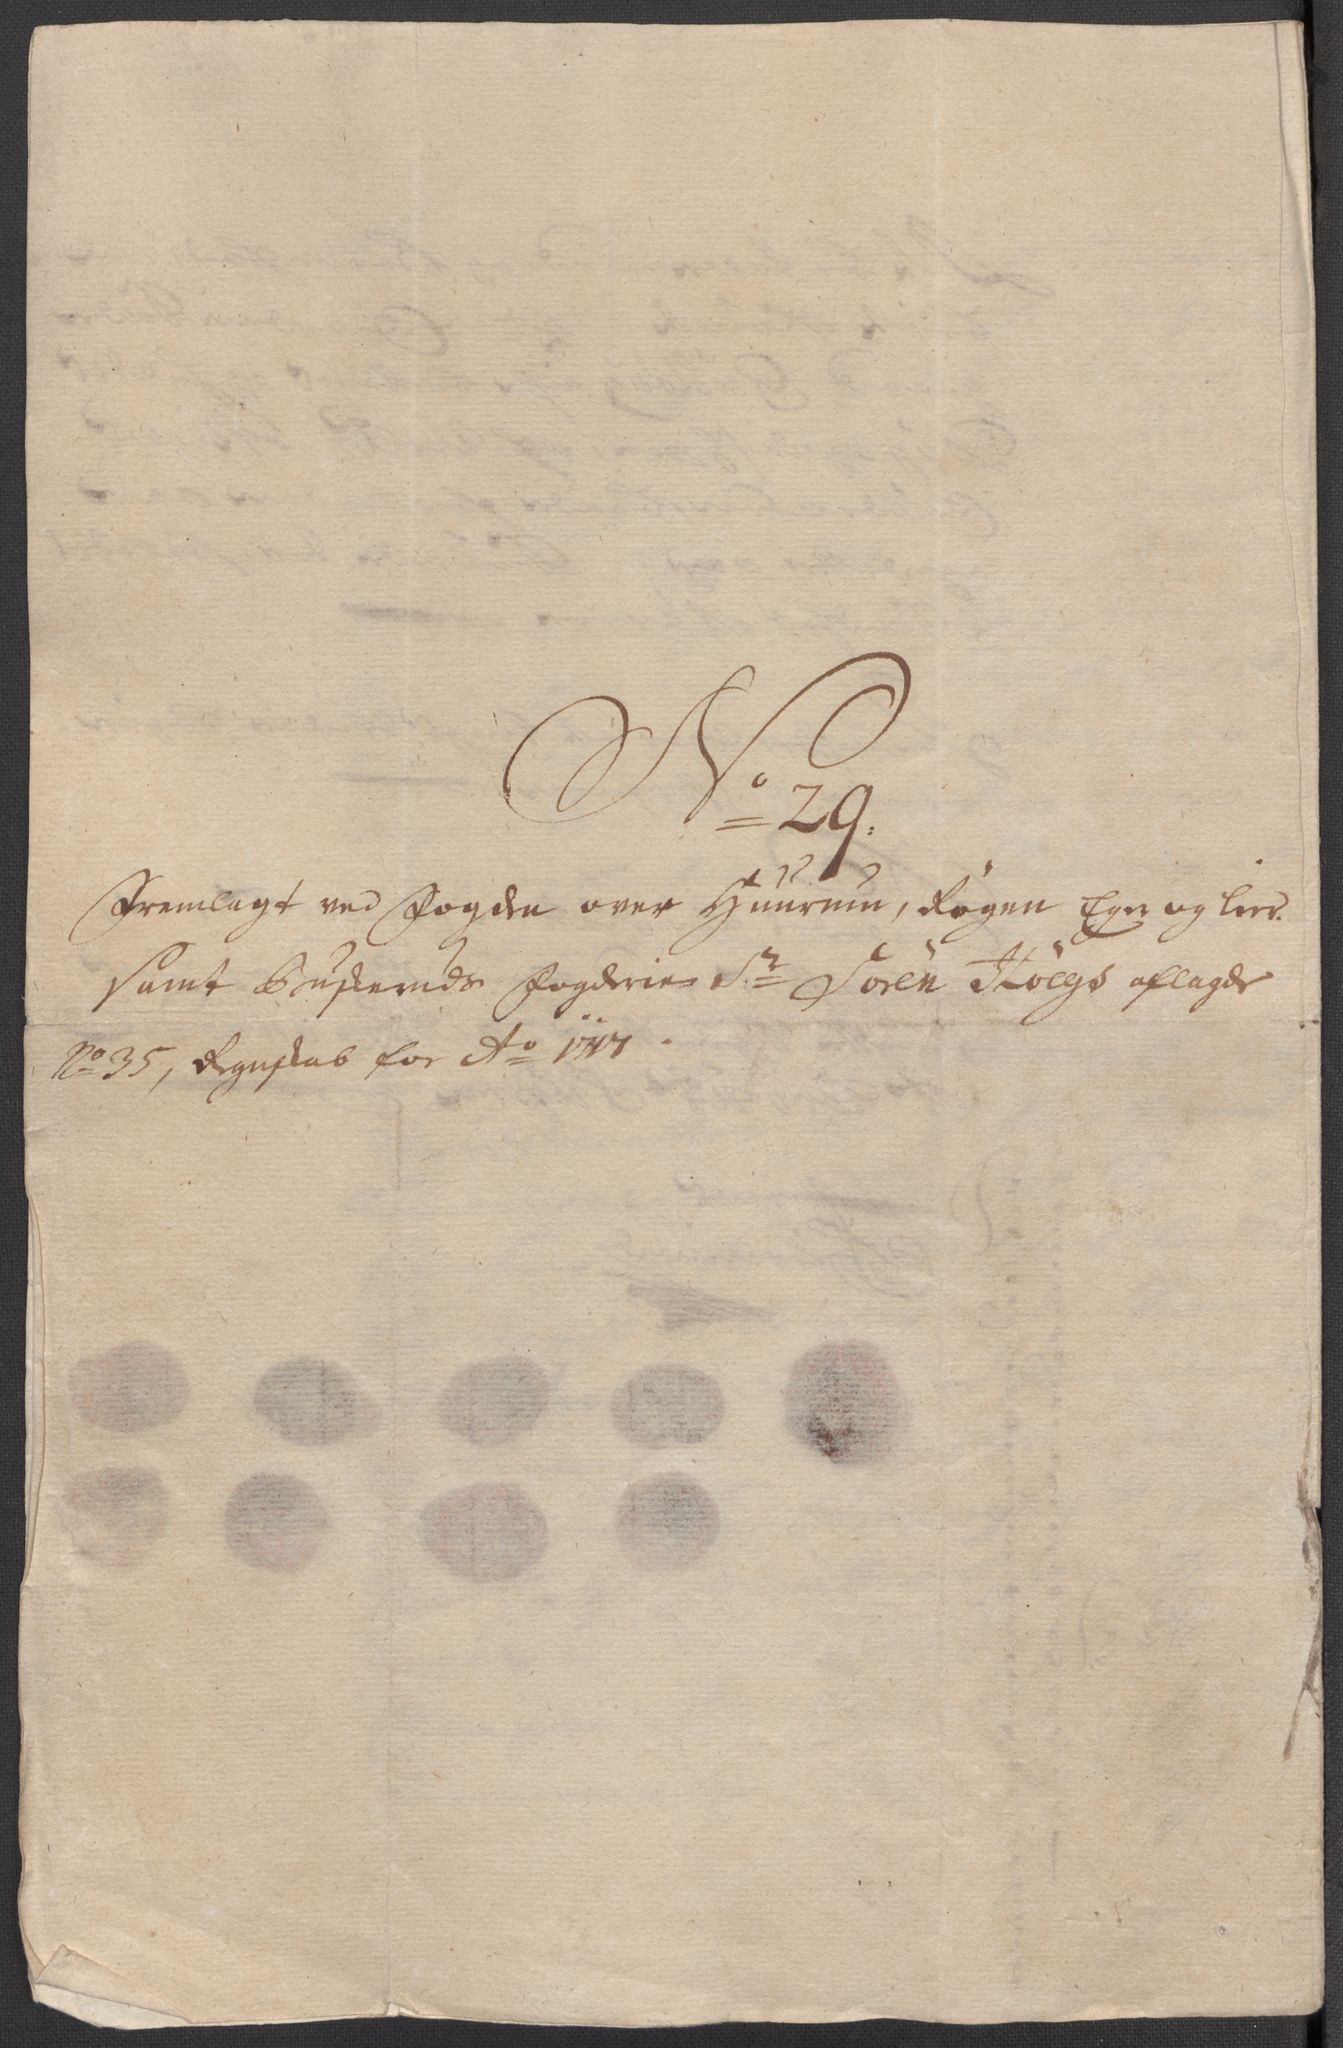 No 29.
Fremlagt ved Fogden over Huurum, Røgen Eger og Lier
samt Buskeruds Fogderie Sr Søren Hølgs aflagde
No 35, Regnskab for Ao 1717.